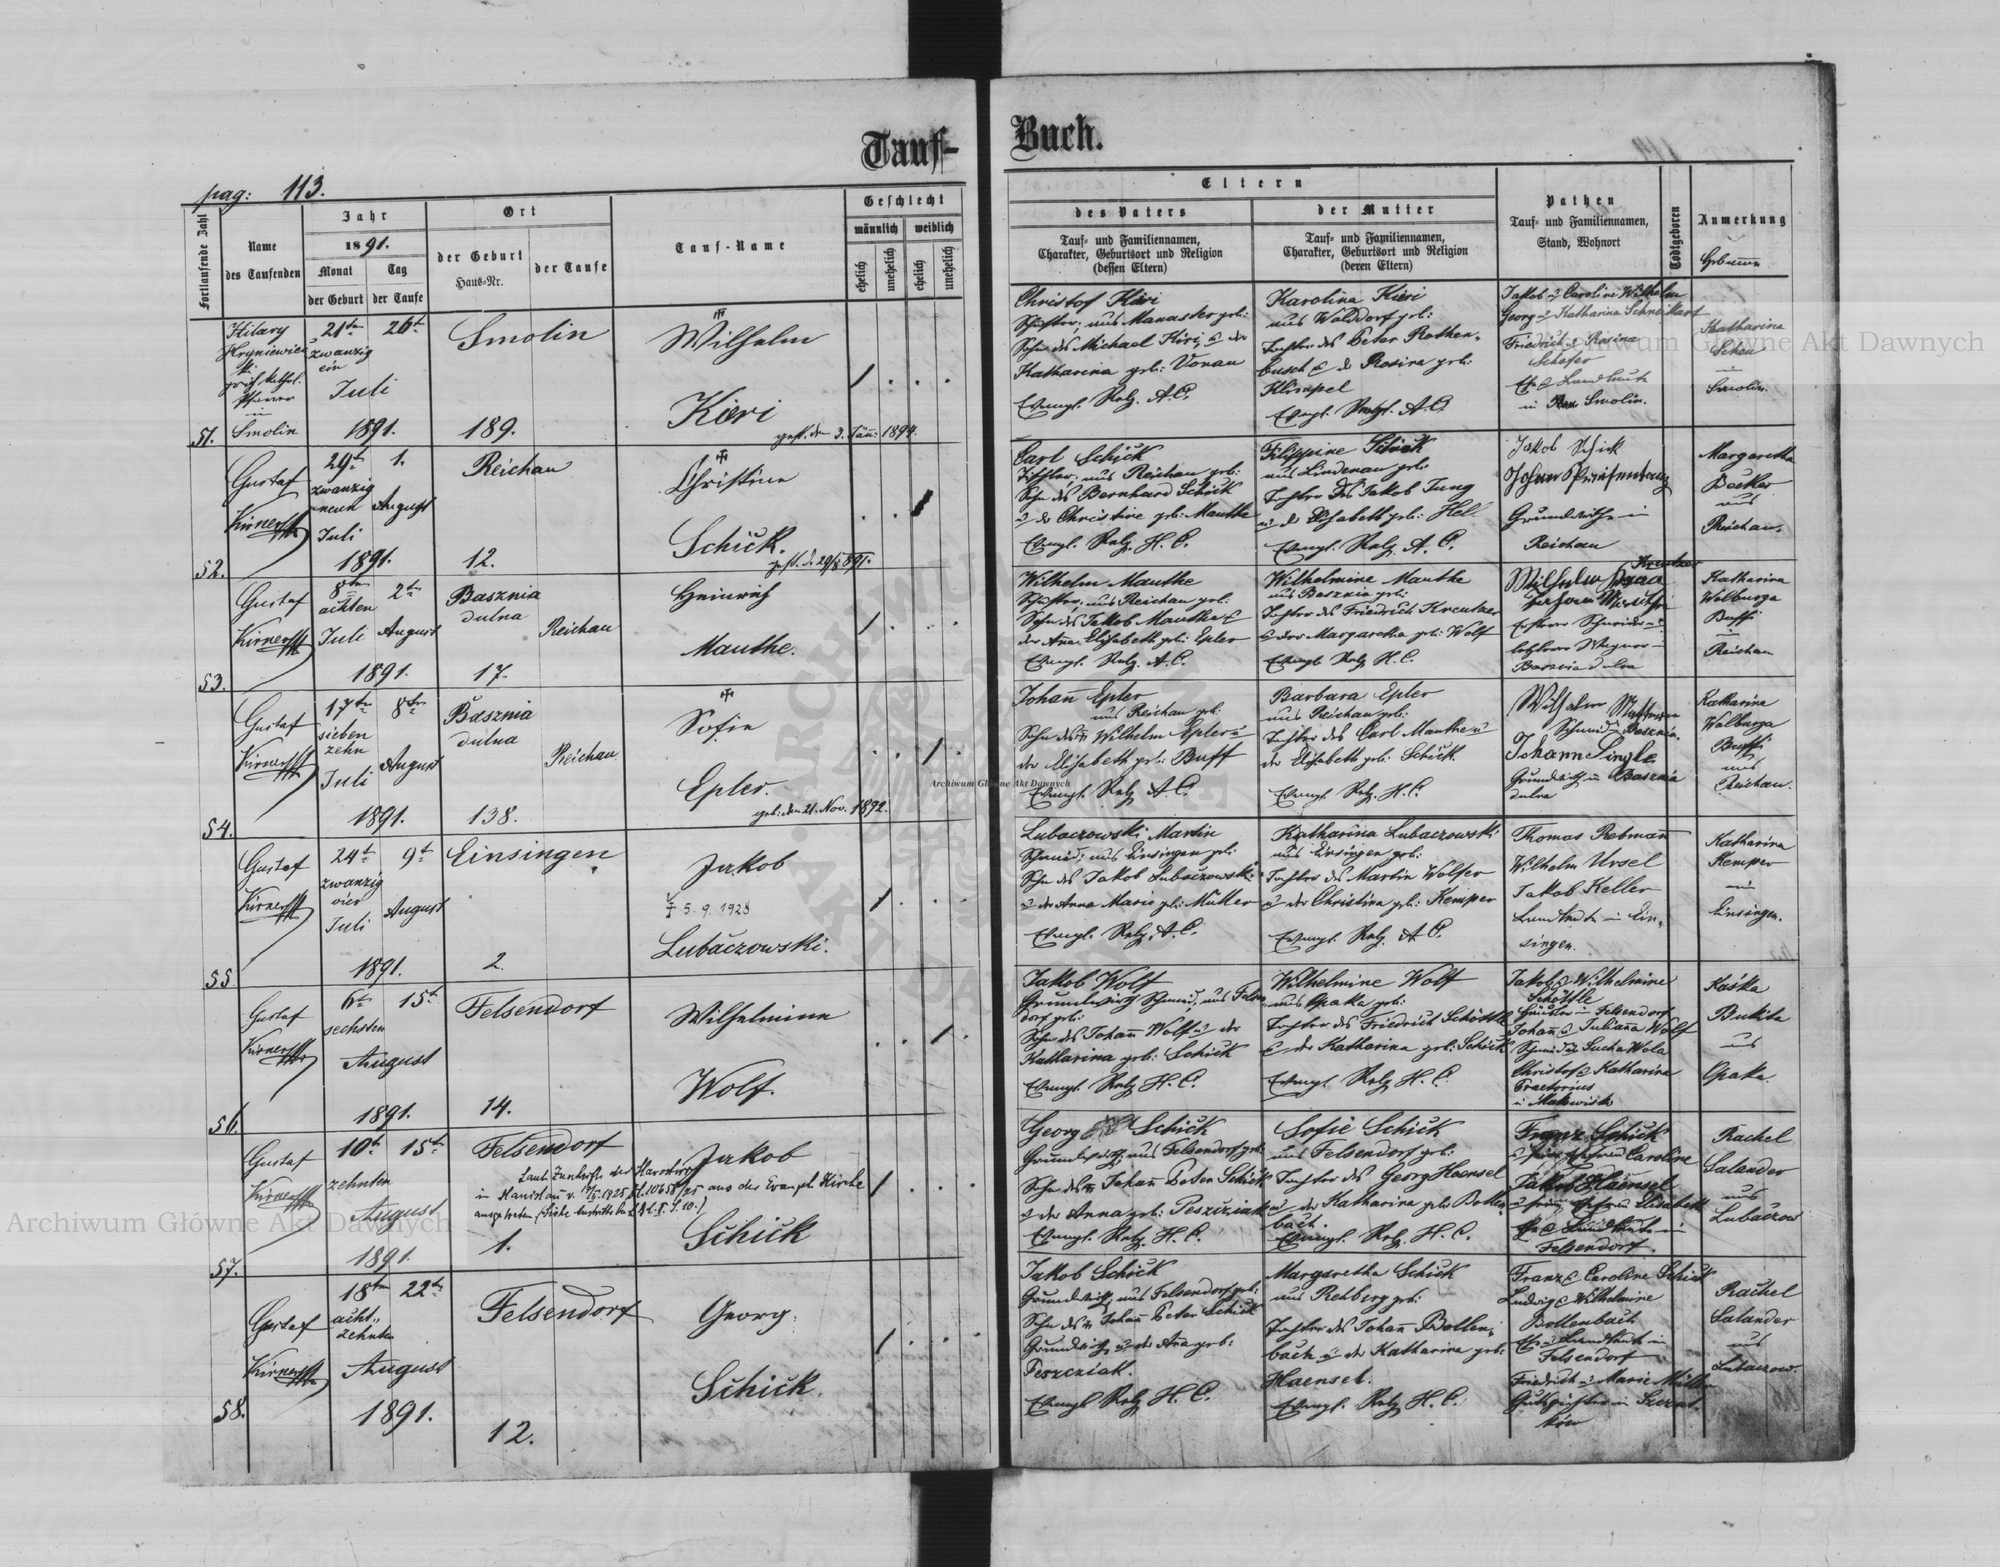 Tauf-
Buch.
pag: 113.
Fortlaufende Zahl
Name
des Taufenden
Jahr
1891.
Monat
Tag
der Geburt
der Taufe
Ort
der Geburt
Haus-Nr.
der Taufe
Tauf-Name
Geschlecht
männlich
weiblich
ehelich
unehelich
ehelich
unehelich
Eltern
des Vaters
Tauf- und Familiennamen,
Charakter, Geburtsort und Religion
(dessen Eltern)
der Mutter
Tauf- und Familiennamen,
Charakter, Geburtsort und Religion
(deren Eltern)
Pathen
Tauf- und Familiennamen,
Stand, Wohnort
Todtgeboren
Anmerkung
51.
Hilary
Hryniewiecki
Pfarrer
in
Smolin
21ten
26t
zwanzig
ein
Juli
1891.
Smolin
189.
Wilhelm
Kieri
gest. den 3. Jänn: 1894.
Christof Kieri
Schuster, aus Manaster geb:
Sohn des Michael Kieri u der
Katharina geb: Vonau
Evangl. Relg. A.C.
Karolina Kieri
aus Walddorf geb:
Tochter des Peter Rothen-
busch u d Rosina geb:
Klimpel
Evangl. Relgl. A.C.
Jakob u Caroline Wilhelm
Georg u Katharina Schneikart
Friedrich u Rosina
Schäfer
in Smolin.
Katharina
Scheu
in
Smolin.
52.
Gustaf
29t
1.
zwanzig
neun
August
Juli
1891.
Reichau
12.
Christine
Schick.
gest. d. 29/8 891.
Carl Schick
Tischler, aus Reichau geb:
Sohn des Bernhard Schick
u der Christine geb: Manthe
Evangl. Relg. H. C.
Filippine Schick
aus Lindenau geb:
Tochter des Jakob Jung
u d Elisabeth geb: Hel
Evangl. Relg. A. C.
Jakob Schick
Grundwirthe in
Reichau
Margaretha
Decker
aus
Reichau.
53.
Gustaf
8ten
2ten
achten
Juli
August
1891.
Basznia
dulna
Reichau
17.
Heinrich
Manthe.
Wilhelm Manthe
Schuster, aus Reichau geb:
Sohn des Jakob Manthe u
der Anna Elisabeth geb: Epler
Evangl. Relg. A.C.
Wilhelmine Manthe
aus Basznia geb:
Tochter des Friedrich Kreutzer
u der Margaretha geb: Wolf
Evangl. Relg. H.C.
Kreutzer
Basznia dulna
Katharina
Walburga
Buffi
in
Reichau
54.
Gustaf
17ten
8ten
sieben
zehn
Juli
August
1891.
Basznia
dulna
Reichau
138.
Sofie
Epler.
gest: den 21. Nov. 1892.
Johan Epler
aus Reichau geb:
Sohn des Wilhelm Epler u
der Elisabeth geb: Buff
Evangl. Relg. A.C.
Barbara Epler
aus Reichau geb:
Tochter des Carl Manthe u
der Elisabeth geb: Schick.
Evangl. Relg. H.C.
Johann Single
Grundwirth in Basznia
dulna
Katharina
Walburga
Buffi
aus
Reichau.
55
Gustaf
24t
9t
zwanzig
vier
Juli
August
1891.
Einsingen
2.
Jakob
† 5. 9. 1928
Lubaczowski.
Lubaczowski Martin
Schmied, aus Einsingen geb:
Sohn des Jakob Lubaczowski
u der Anna Marie geb: Müller
Evangl. Relg. A.C.
Katharina Lubaczowski
aus Einsingen geb:
Tochter des Martin Wolfer
u der Christina geb: Kemper
Evangl. Relg. A.C.
Thomas Rebman
Wilhelm Ursel
Jakob Keller
Landleute in Ein-
singen.
Katharina
Kemper
aus
Einsingen.
56.
Gustaf
6t
15t
sechsten
August
1891.
Felsendorf
14.
Wilhelmine
Wolf.
Jakob Wolf
Grundwirth Schmied, aus Felsen
dorf geb:
Sohn des Johann Wolf u der
Katharina geb: Schick
Evangl. Relg H.C.
Wilhelmine Wolf
aus Opaka geb:
Tochter des Friedrich Schöttle
u der Katharina geb: Schick
Evangl. Relg H.C.
Jakob u Wilhelmine
Schöttle
in Felsendorf
Johann u Juliana Wolf
Schmied in Sucha Wola
Christof u Katharina
Praetorius
Kaśka
Bukita
aus
Opaka.
57.
Gustaf
10t
15t
zehnten
August
1891.
Felsendorf
in Stanislau v. 1925 aus der Evangl. Kirche
1.
Jakob
Schick
Georg Schick
Grundwirth, aus Felsendorf geb:
Sohn des Johann Peter Schick
u der Anna geb: Pesziziak
Evangl. Relg. H.C.
Sofie Schick
aus Felsendorf geb:
Tochter des Georg Haensel
u der Katharina geb: Bollen
bach.
Evangl. Relg. H.C.
Franz Schick
Caroline
Jakob Haensel
Elisabeth
Felsendorf.
Rachel
Salander
aus
Lubaczow
58.
Gustaf
18ten
22ten
acht-
zehnten
August
1891.
Felsendorf
12.
Georg.
Schick.
Jakob Schick
Grundwirth, aus Felsendorf geb:
Sohn des Johann Peter Schick
Grundwirth, u der Ana geb:
Peszcziak.
Evangl Relg H.C.
Margaretha Schick
aus Rehberg geb:
Tochter des Johann Bollen-
bach u der Katharina geb:
Haensel.
Evangl. Relg H.C.
Franz u Caroline Schick
Ludwig u Wilhelmine
Bollenbach
Landleute in
Felsendorf
Friedrich u Marie Müller
Rachel
Salander
aus
Lubaczow.
Archiwum Główne Akt Dawnych
Archiwum Główne Akt Dawnych
Archiwum Główne Akt Dawnych